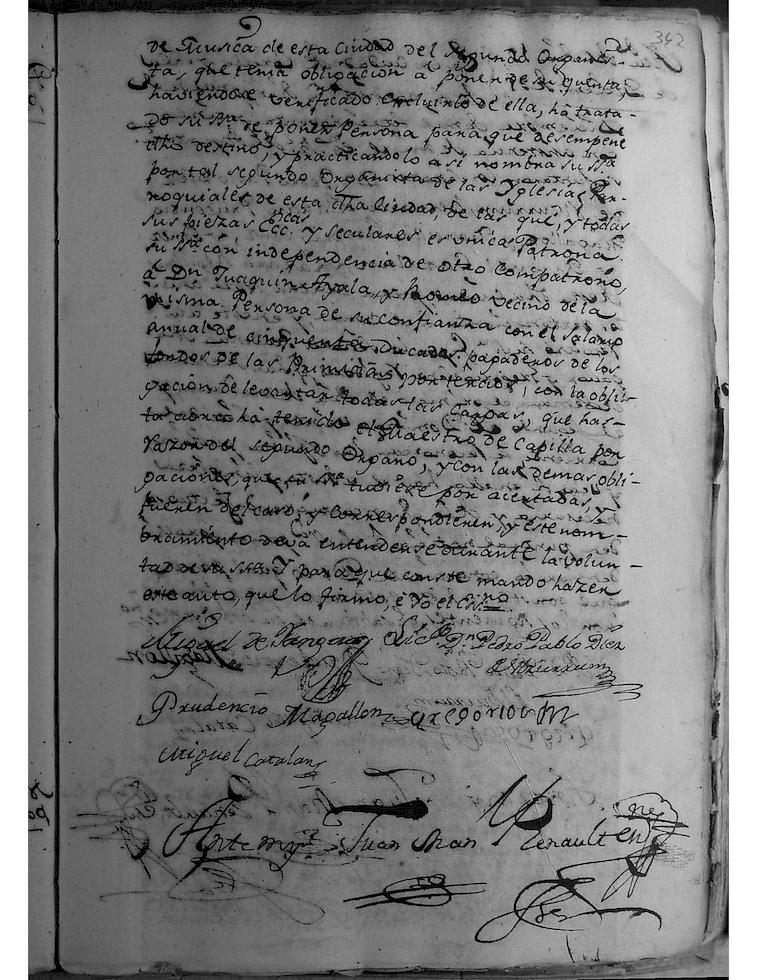 342
de Musica de esta Ciudad del segundo Organis-
ta, que tenia obligacion a poner de su quenta,
haviendose verificado excluirle de ella, ha trata-
do su Sa. de poner Persona, para que desempeñe
dho destino, y practicandolo asi nombra su Sa.
por tal segundo Organista de las Yglesias Pa-
rroquiales de esta dha Ciudad de las que, y todas
sus piezas Eccas. y seculares es unica Patrona
su Sa. con independencia de otro Compatrono,
a Dn Juaquin Ayala, y Romeo vecino de la
misma Persona de su confianza con el salario
anual de cinquenta Ducados, pagaderos de los
fondos de las Primicias por tercios, con la obli-
gacion de levantar todas las Cargas, que has-
ta aora ha tenido el Maestro de Capilla por
razon del segundo Organo, y con las demas obli-
gaciones, que su Sa. tubiere por acertadas, y
fueren del caso, y correspondieren, y este nom-
bramiento deva entenderse durante la volun-
tad de su Sa. Y para que conste mando hazer
este auto, que lo firmo, e yo el Esno.
Miguel de Licdo. Dn. Pedro Pablo Diez
Ulzurrun
Prudencio Magallon Gregorio
Miguel Catalan
Ante mi Juan Renault